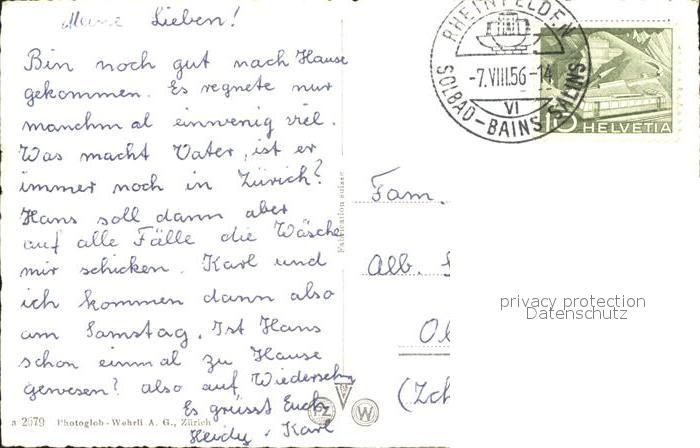 Meine Lieben!
Bin noch gut nach Hause
gekommen. Es regnete nur
manchmal einwenig viel.
Was macht Vater, ist er
immer noch in Zürich?
Hans soll dann aber
auf alle Fälle die Wäsche
mir schicken. Karl und
ich kommen dann also
am Samstag. Ist Hans
schon einmal zu Hause
gewesen? also auf Wiedersehn
Es grüsst Euch
Heidy, Karl
a 2679 Photoglob-Wehrli A. G., Zürich
Fabrication suisse
PZ W
RHEINFELDEN
-7.VIII.56-14
VI
SOLBAD-BAINS SALINS
15 HELVETIA
Fam.
Alb.
Ol
(Zch
privacy protection
Datenschutz